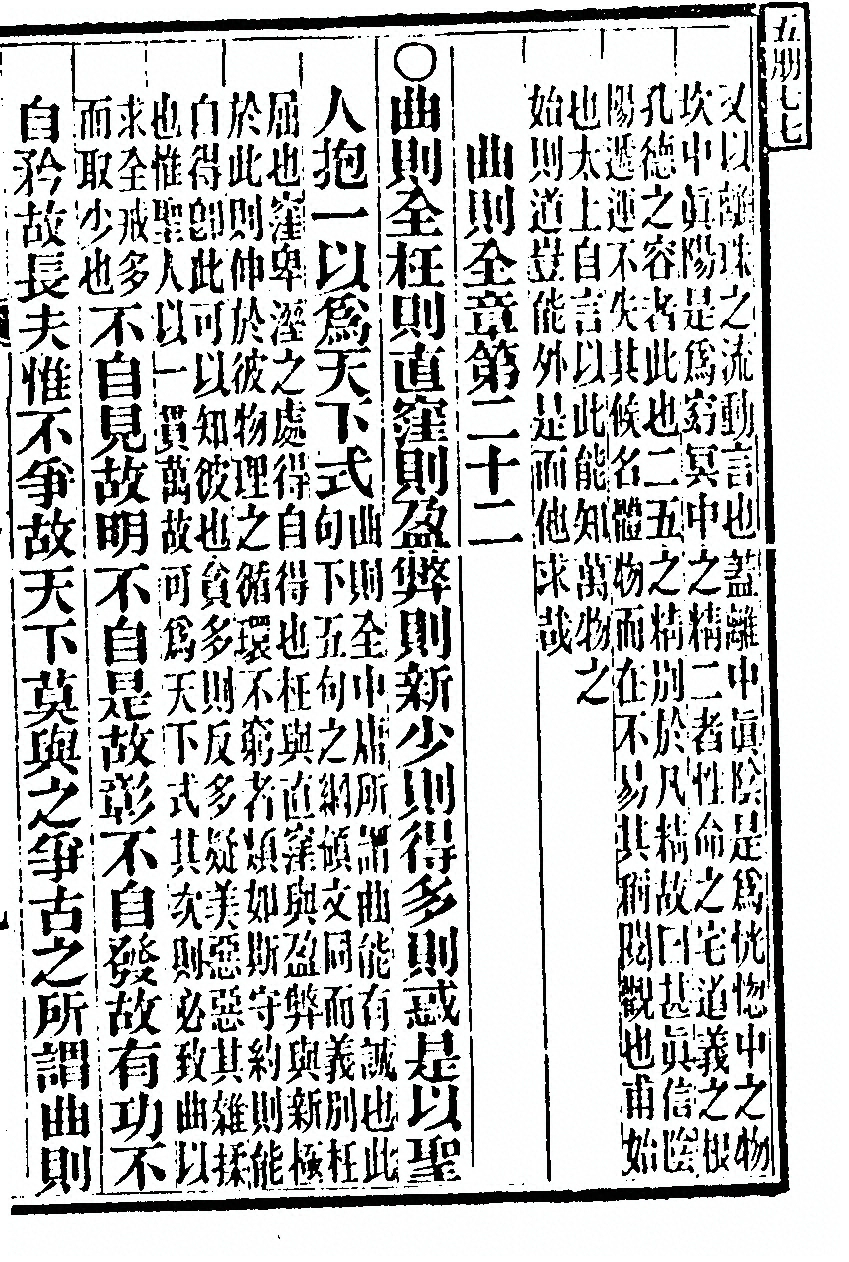 五册七七
爻以離珠之流動言也蓋離中眞陰是爲恍惚中之物
坎中眞陽是爲窈冥中之精二者性命之宅道義之根
孔德之容者此也二五之精別於凡精故曰甚眞信陰
陽遞運不失其候名體物而在不易其稱閱觀也甫始
也太上自言以此能知萬物之
始則道豈能外是而他求哉
曲則全章第二十二
○曲則全枉則直窪則盈弊則新少則得多則惑是以聖
人抱一以爲天下式
曲則全中庸所謂曲能有誠也此
句下五句之綱領文同而義別枉
屈也窪卑溼之處得自得也枉與直窪與盈弊與新極
於此則伸於彼物理之循環不窮者類如斯守約則能
自得卽此可以知彼也貪多則反多疑美惡惡其雜揉
也惟聖人以一貫萬故可爲天下式其次則必致曲以
求全戒多
而取少也
不自見故明不自是故彰不自發故有功不
自矜故長夫惟不爭故天下莫與之爭古之所謂曲則